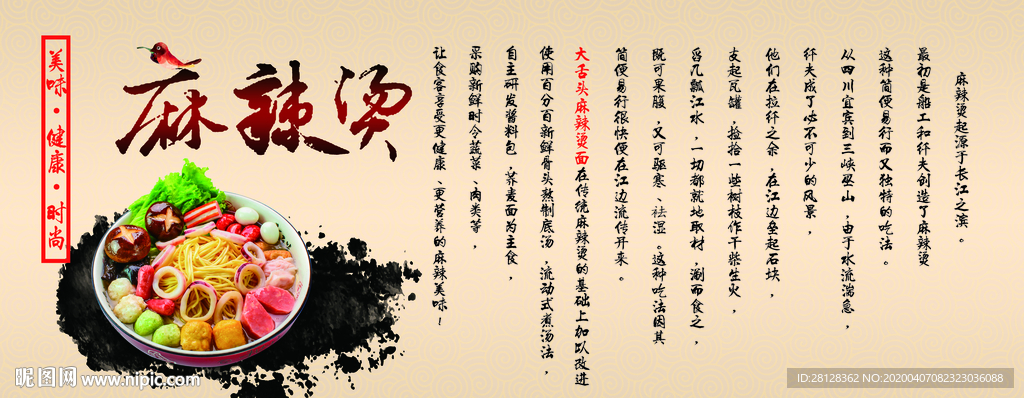 美味·健康·时尚
麻辣烫
麻辣烫起源于长江之滨。
最初是船工和纤夫创造了麻辣烫
这种简便易行而又独特的吃法。
从四川宜宾到三峡巫山，由于水流湍急，
纤夫成了必不可少的风景，
他们在拉纤之余，在江边垒起石块，
支起瓦罐，捡拾一些树枝作干柴生火，
舀几瓢江水，一切都就地取材，涮而食之，
既可果腹，又可驱寒、祛湿。这种吃法因其
简便易行很快便在江边流传开来。
大舌头麻辣烫面在传统麻辣烫的基础上加以改进
使用百分百新鲜骨头熬制底汤，流动式煮汤法，
自主研发酱料包，荞麦面为主食，
采购新鲜时令蔬菜、肉类等，
让食客享受更健康、更营养的麻辣美味！
昵图网 www.nipic.com
ID:28128362 NO:20200407082323036088